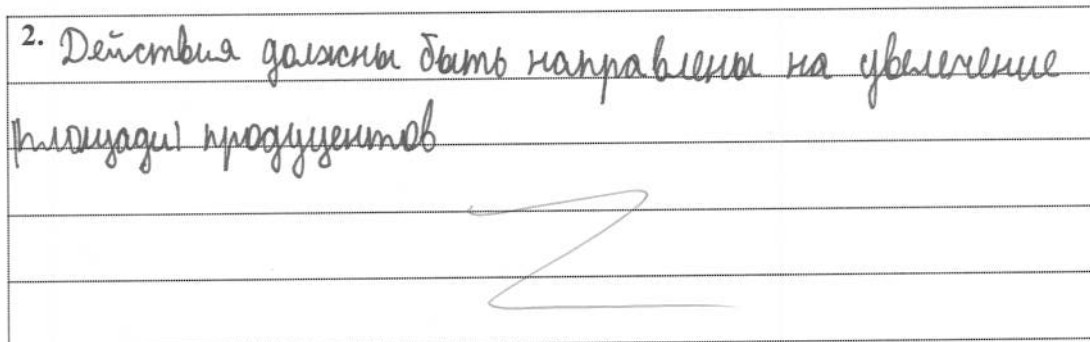 2. Действия должны быть направлены на увеличение
площади продуцентов